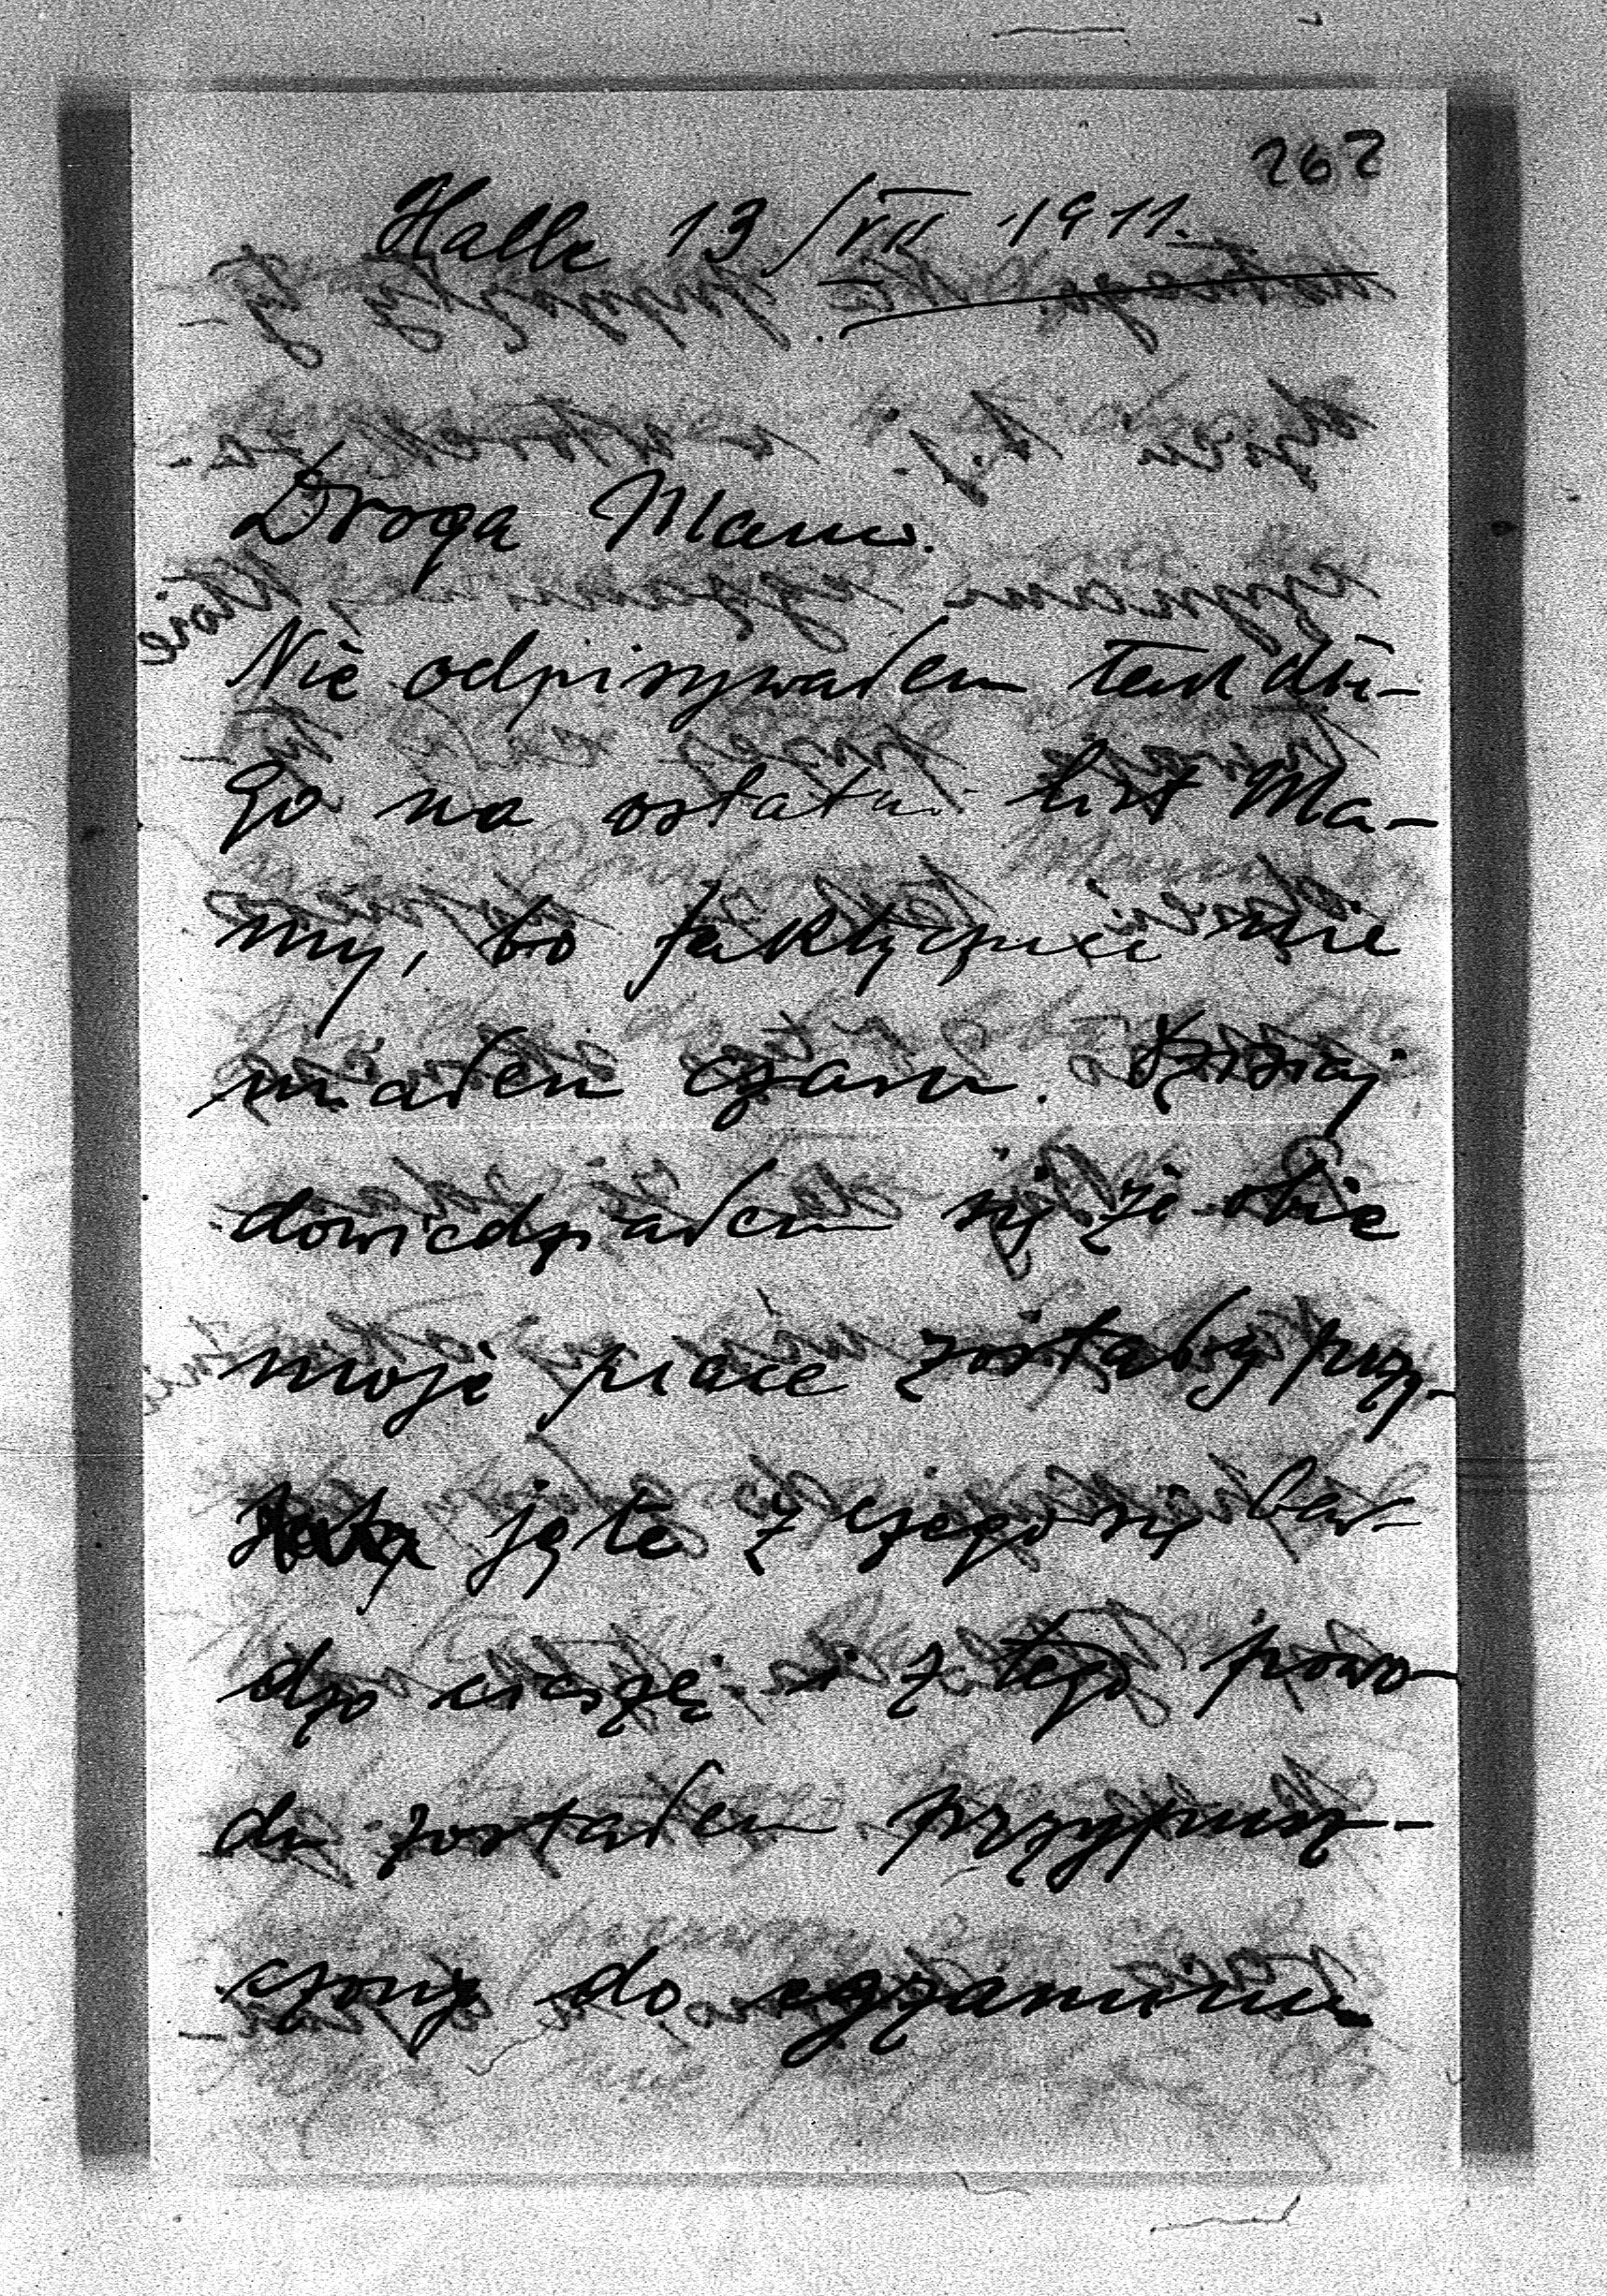 262
Halle 13/VII 1911.
Droga Mamo.
Nie odpisywałem tak dłu-
go na ostatni list Ma-
my, bo faktycznie nie
miałem czasu. Dzisiaj
dowiedziałem się że obie
moje prace zostały przy-
jęte z czego się bar-
dzo cieszę i z tego powo-
du zostałem przypusz-
czony do egzaminu